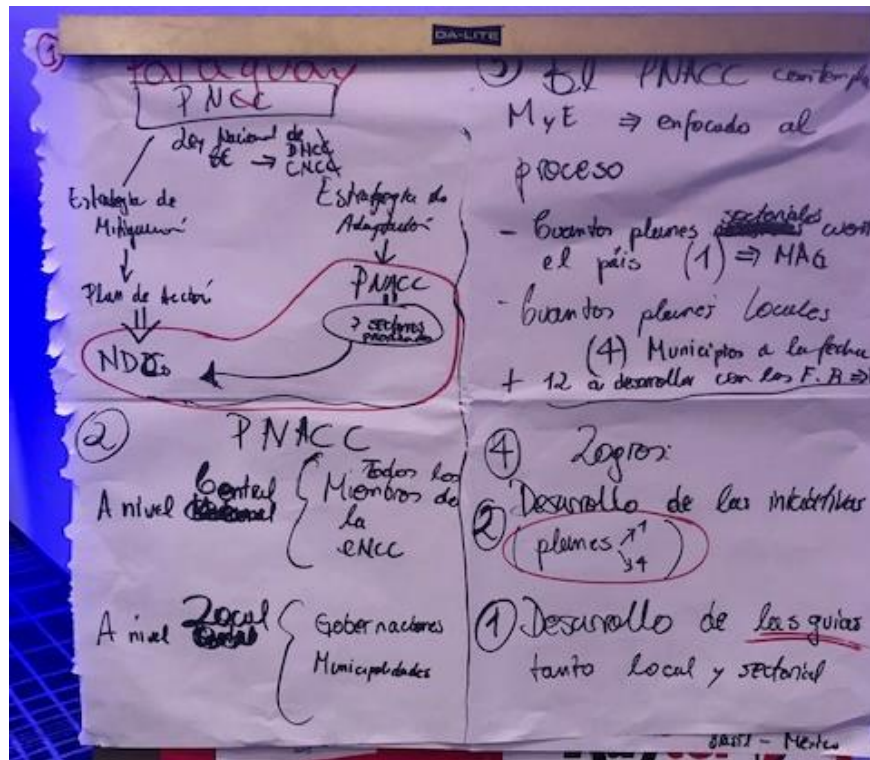 DA-LITE
①
Paraguay
PNCC
Ley Nacional de
CC → DNCC
CNCC
Estrategia de
Mitigación
Plan de Acción
NDCs
Estrategia de
Adaptación
PNACC
7 sectores
priorizados
②
PNACC
A nivel Central
Todos los
Miembros de
la
CNCC
A nivel Local
Gobernaciones
Municipalidades
③ El PNACC contempla
MyE ⇒ enfocado al
proceso
- Cuantos planes sectoriales
el país (1) ⇒ MAG
- Cuantos planes Locales
(4) Municipios a la fecha
+ 12 a desarrollar con los F.R ⇒
④ Logros:
Desarrollo de las iniciativas
② (planes ↗1
↘4)
① Desarrollo de las guias
tanto local y sectorial
Brasil - México